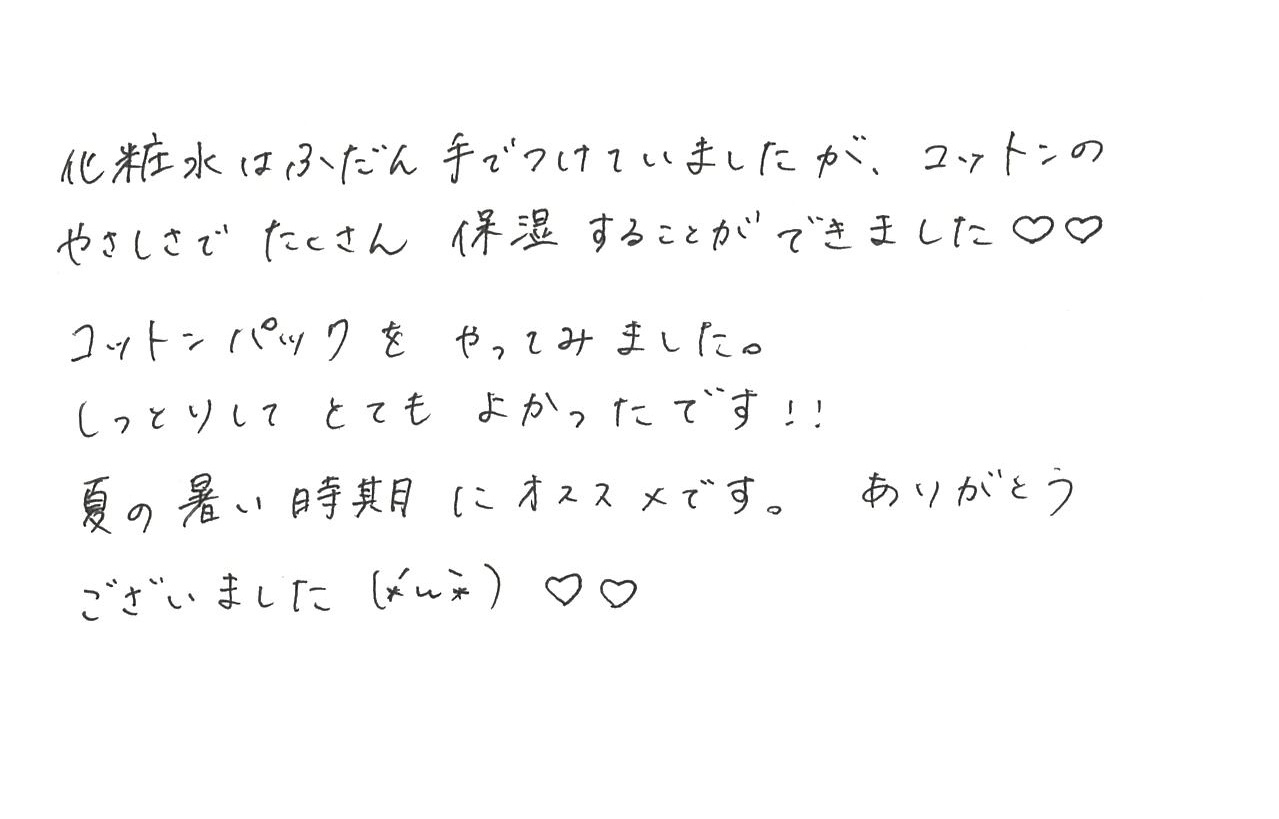 化粧水はふだん手でつけていましたが、コットンの
やさしさで たくさん 保湿することができました♡♡
コットンパックを やってみました。
しっとりして とても よかったです!!
夏の暑い時期にオススメです。 ありがとう
ございました (*´ω`*) ♡♡